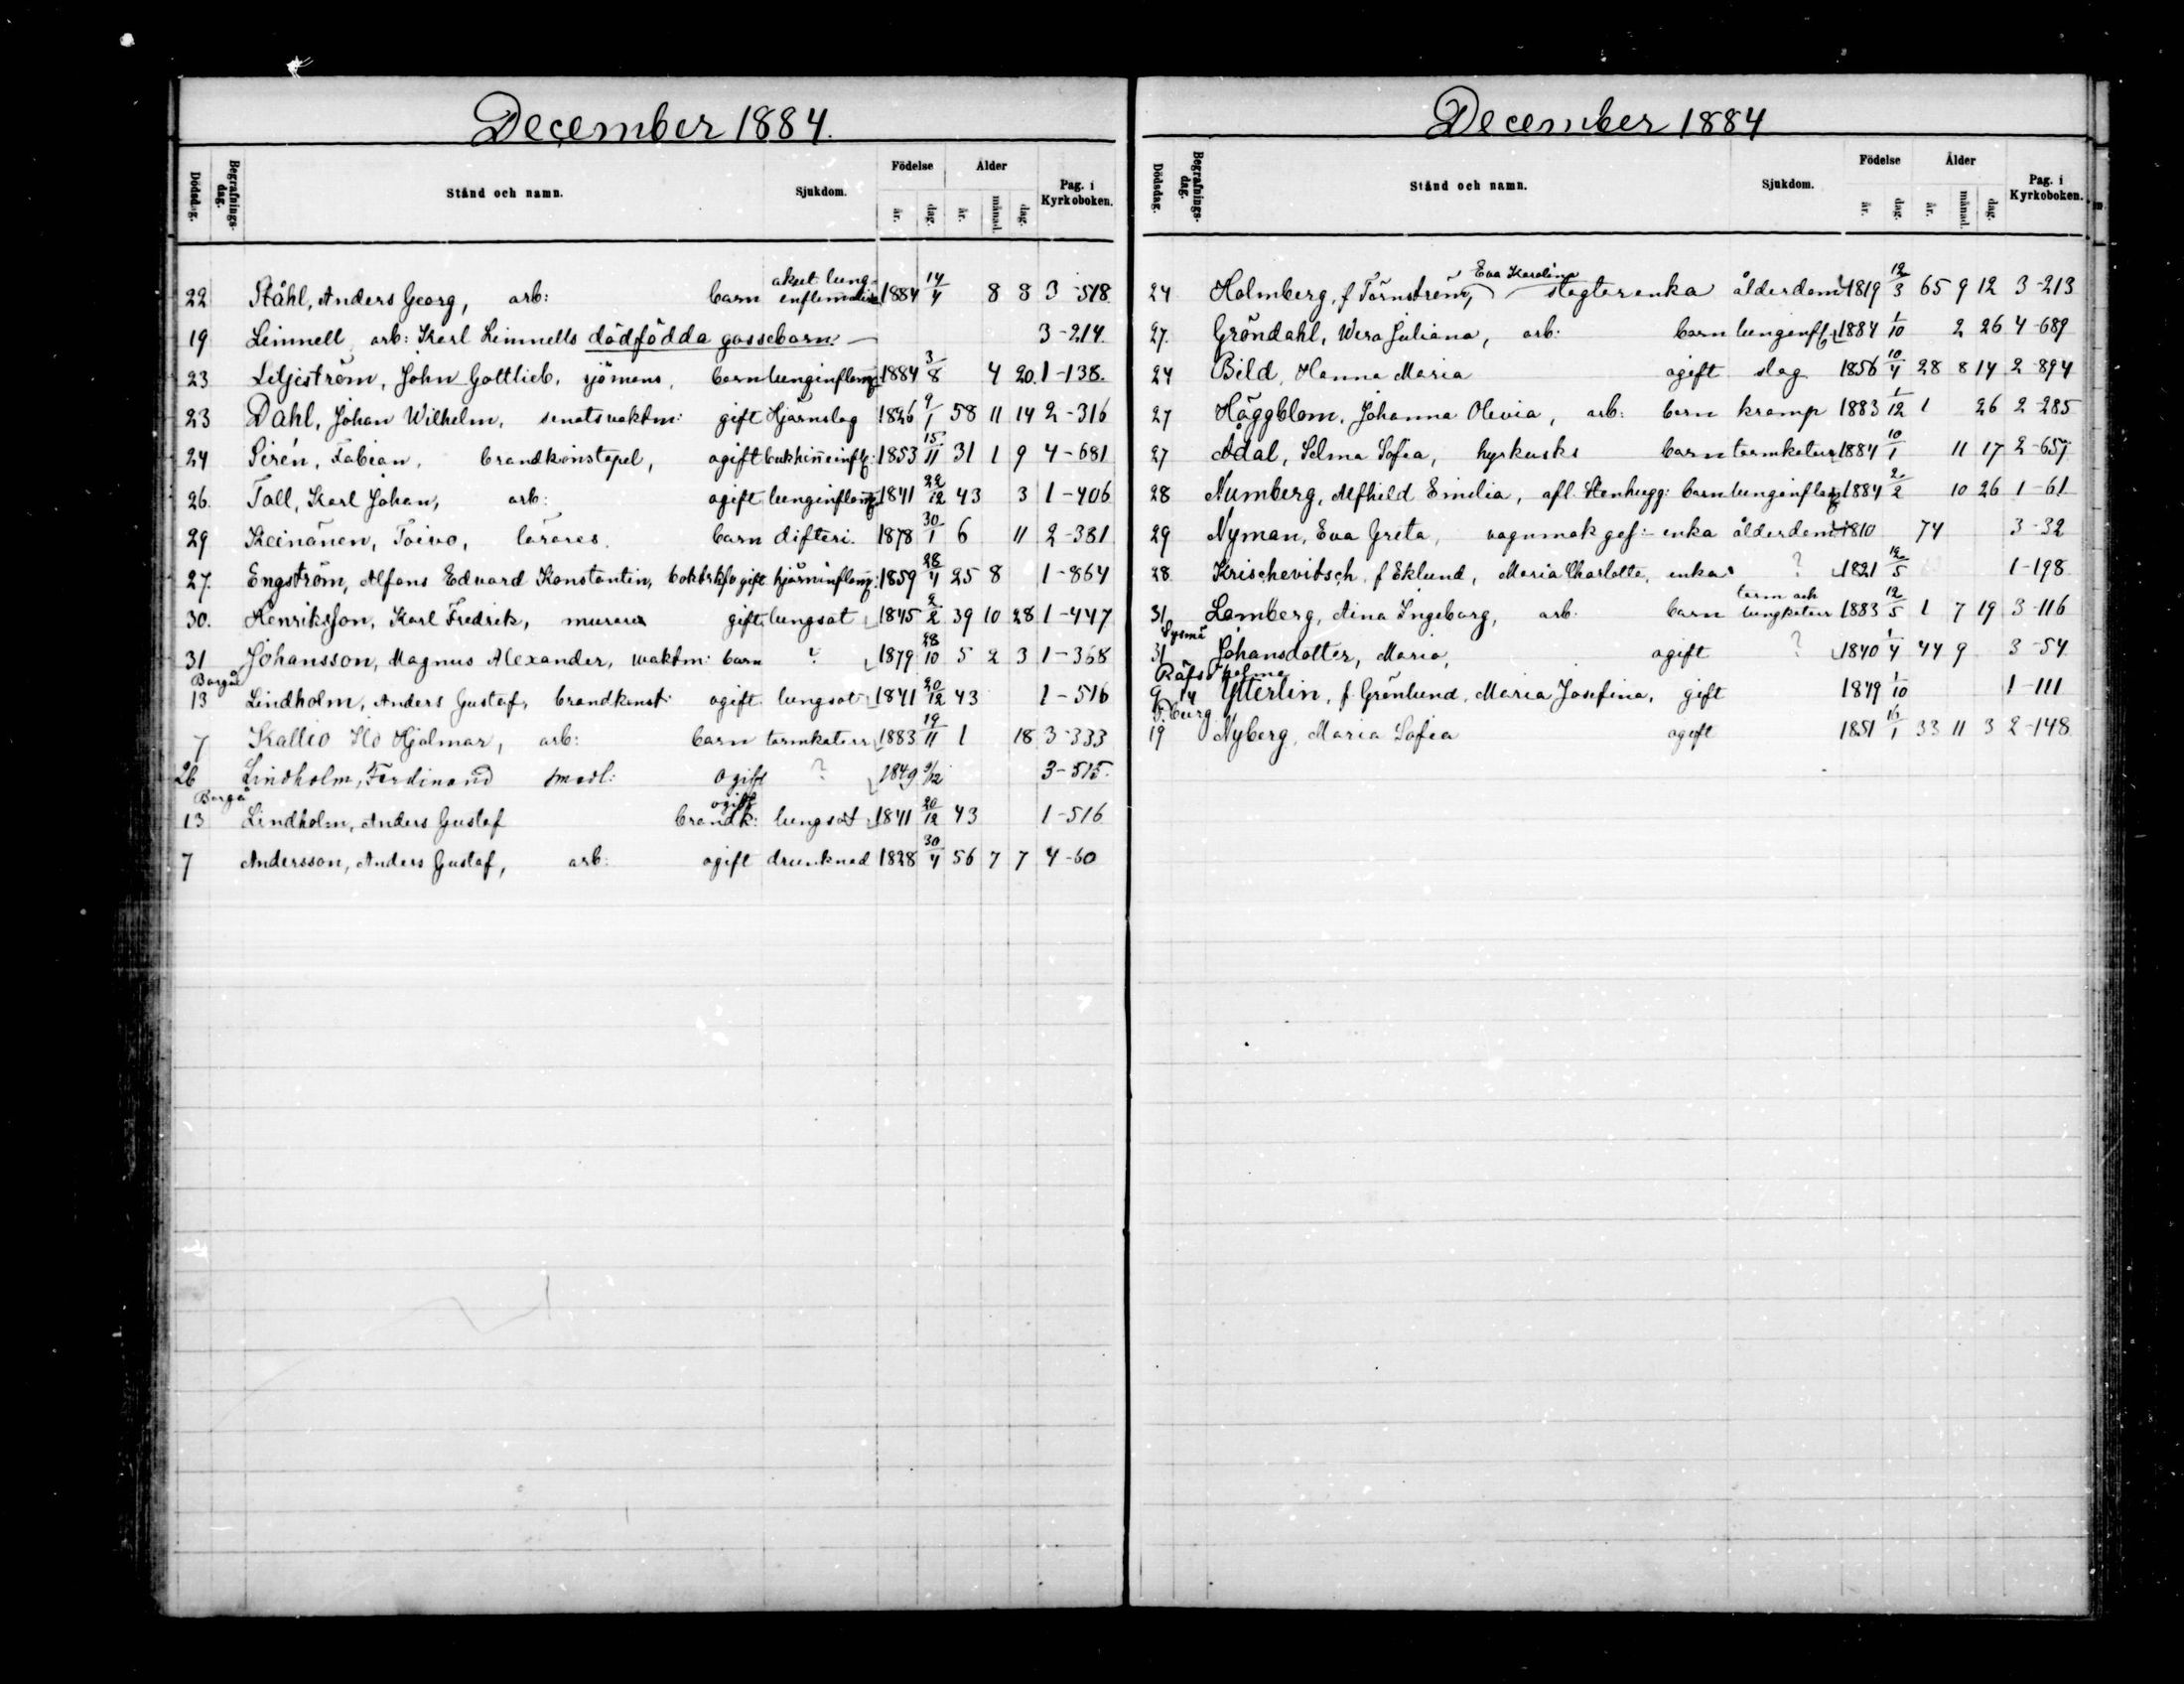 December 1884.
Dödsdag. Begrafningsdag. Stånd och namn. Sjukdom. Födelse år. dag. Ålder år. månad. dag. Pag. i Kyrkoboken.
22 Ståhl, Anders Georg, arb: barn akut lunginflamation 1884 14/4 8 8 3-518
19 Limnell arb: Karl Limnells dödfödda gossebarn. — 3-214.
23 Liljeström, John Gottlieb, sjömans, barn lunginflam: 1884 3/8 4 20. 1-138.
23 Dahl, Johan Wilhelm, senatsvaktm: gift Hjärnslag 1826 9/1 58 11 14 2-316
24 Sirén, Fabian, brandkonstapel, ogift bukhinneinfl: 1853 15/11 31 1 9 4-681
26. Tall, Karl Johan, arb: ogift lunginflam: 1841 22/12 43 3 1-406
29 Keinänen, Toivo, lärares. barn difteri. 1878 30/1 6 11 2-381
27. Engström, Alfons Edvard Konstantin, ogift hjärninflam: 1859 28/4 25 8 1-864
30. Henriksson, Karl Fredrik, murare gift lungsot 1845 2/2 39 10 28 1-447
31 Johansson, Magnus Alexander, waktm: barn ? 1879 28/10 5 2 3 1-368
Borgå
13 Lindholm, Anders Gustaf, brandkonst: ogift lungsot 1841 20/12 43 1-516
7 Kallio Ilo Hjalmar, arb: barn tarmkatarr 1883 19/11 1 18 3-333
26 Lindholm, Ferdinand smedl: ogift ? 1849 9/12 3-515.
Borgå
13 Lindholm, Anders Gustaf ogift brandk: lungsot 1841 20/12 43 1-516
7 Andersson, Anders Gustaf, arb: ogift drunknad 1828 30/4 56 7 7 4-60
December 1884
Dödsdag. Begrafningsdag. Stånd och namn. Sjukdom. Födelse år. dag. Ålder år. månad. dag. Pag. i Kyrkoboken.
24 Holmberg, f Törnström, Eva Karolina slagtarenka ålderdom 1819 12/3 65 9 12 3-213
27. Gröndahl, Wera Juliana, arb: barn lunginfl 1884 1/10 2 26 4-689
24 Bild, Hanna Maria ogift slag 1856 10/4 28 8 14 2-894
27 Häggblom, Johanna Olivia, arb: barn kramp 1883 1/12 1 26 2-285
27 Ådal, Selma Sofia, hyrkusks barn tarmkatarr 1884 10/1 11 17 2-657
28 Numberg, Alfhild Emilia, afl. Stenhugg: barn lunginflam 1884 2/2 10 26 1-61
29 Nyman, Eva Greta, vagnmakges: enka ålderdom 1810 74 3-32
28 Krischevitsch, f Eklund, Maria Charlotta, enka ? 1821 12/5 1-198
31 Lamberg, Aina Ingeborg, arb. barn tarm och lungkatarr 1883 12/5 1 7 19 3-116
Sysmä
31 Johansdotter, Maria, ogift ? 1840 1/4 44 9 3-54
Räfsö kolma
9 14 Ytterlin, f. Grönlund, Maria Josefina, gift 1849 1/10 1-111
P.burg
19 Nyberg, Maria Sofia ogift 1851 16/1 33 11 3 2-148